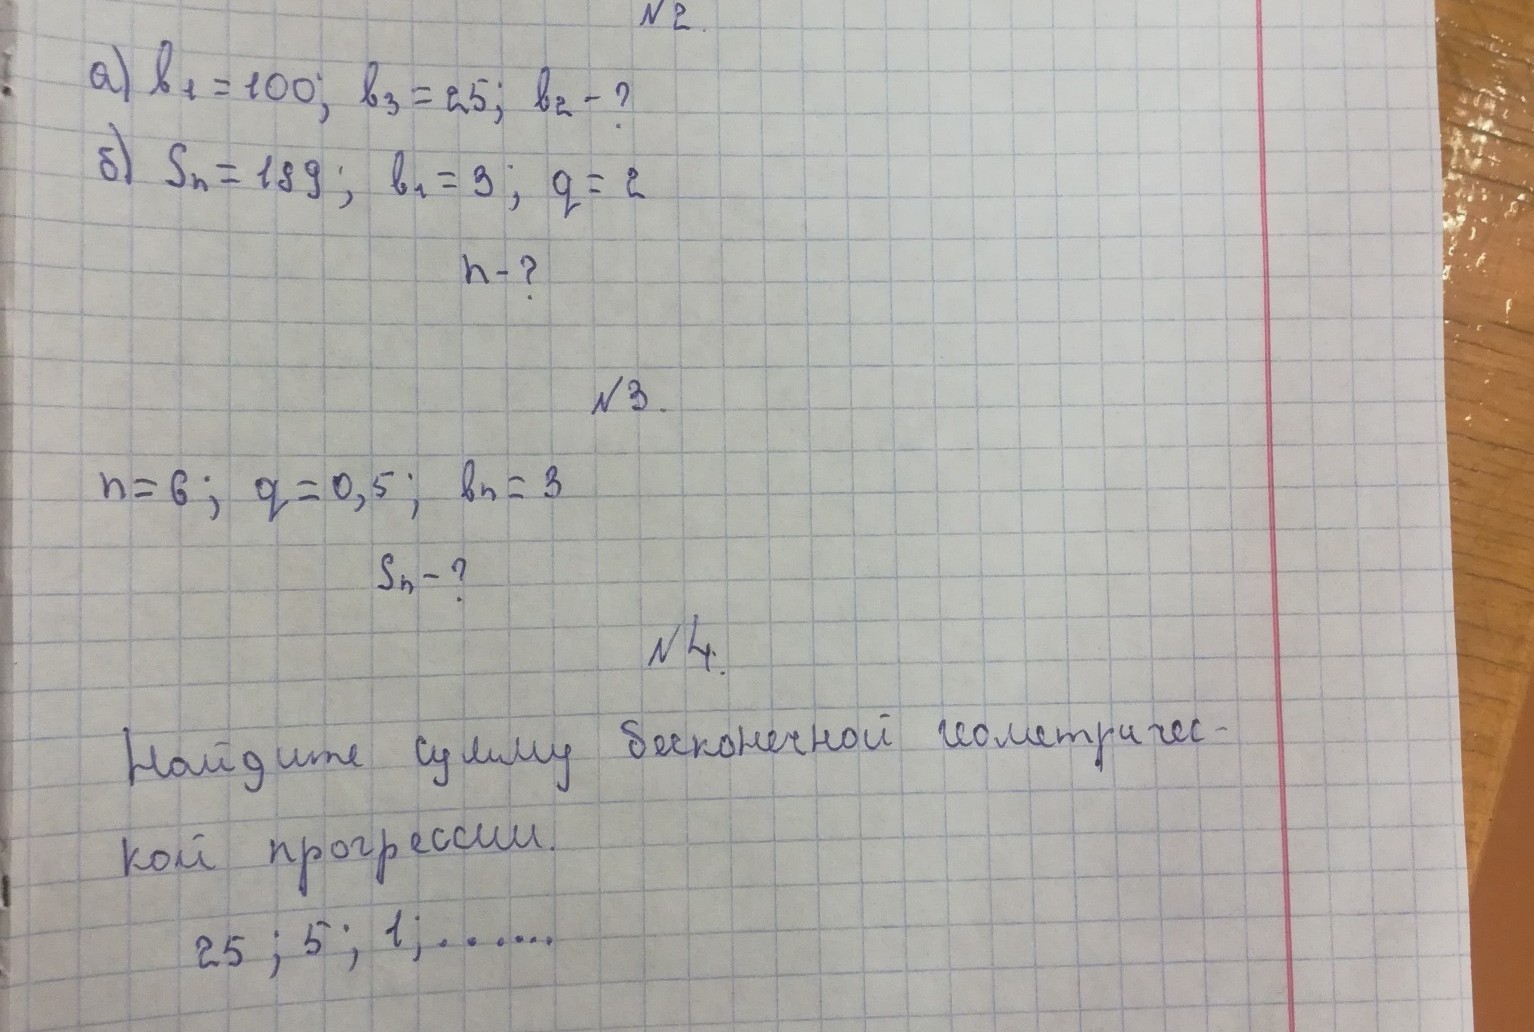 №2.
а) b₁=100; b₃=25; b₂-?
б) Sₙ=189; b₁=3; q=2
n-?
№3.
n=6; q=0,5; bₙ=3
Sₙ-?
№4.
Найдите сумму бесконечной геометричес-
кой прогрессии.
25; 5; 1; .......